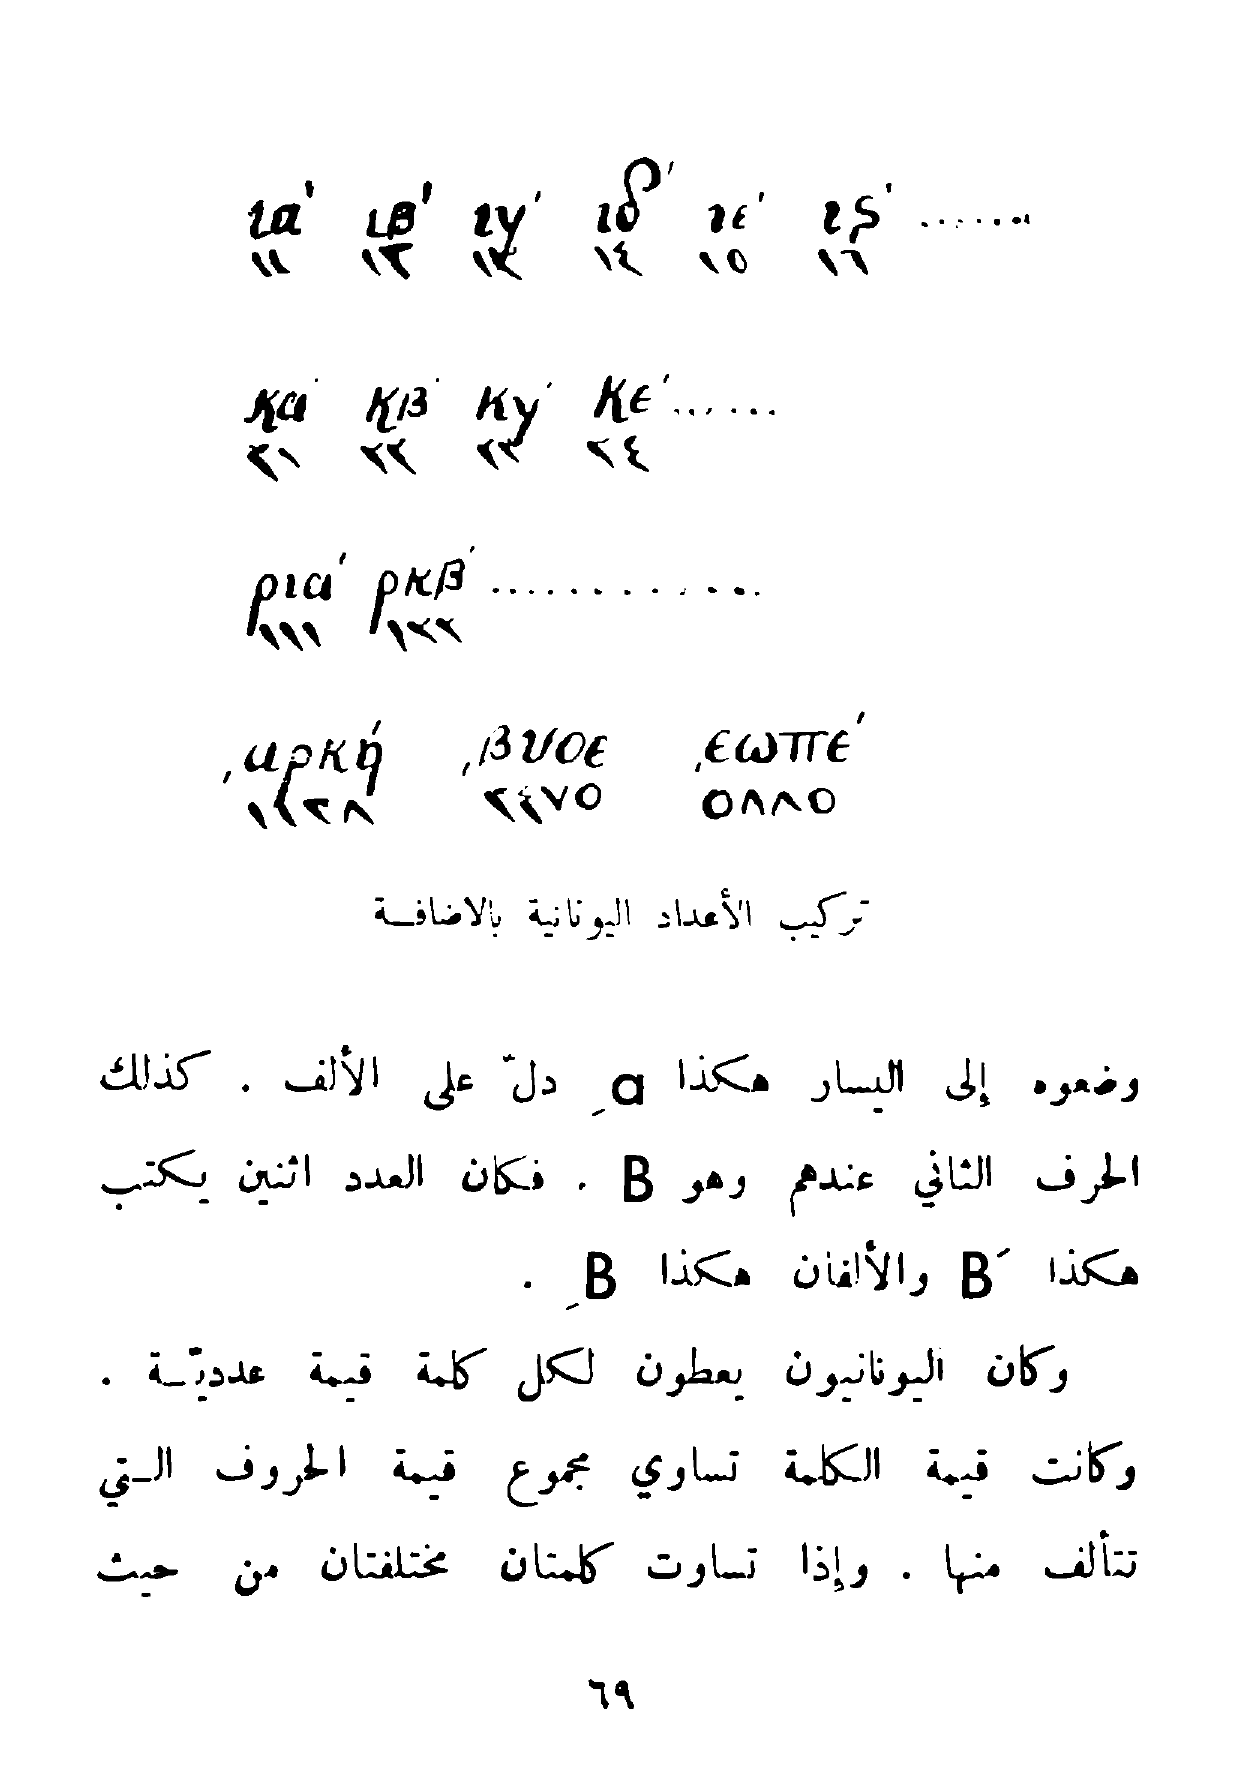 ια′ ιβ′ ιγ′ ιδ′ ιε′ ις′ .......
١١ ١٢ ١٣ ١٤ ١٥ ١٦
κα′ κβ′ κγ′ κε′ ......
٢١ ٢٢ ٢٣ ٢٤
ρια′ ρκβ′ ............
١١١ ١٢٢
͵αρκή ͵βυοε ͵εωπε′
١١٢٨ ٢٤٧٥ ٥٨٨٥
تركيب الأعداد اليونانية بالاضافــة
وضعوه إلى اليسار هكذا ͵a دلّ على الألف . كذلك
الحرف الثاني عندهم وهو B . فكان العدد اثنين يكتب
هكذا B′ والألفان هكذا ͵B .
وكان اليونانيون يعطون لكل كلمة قيمة عدديّـة .
وكانت قيمة الكلمة تساوي مجموع قيمة الحروف الـتي
تتألف منها . وإذا تساوت كلمتان مختلفتان من حيث
٦٩